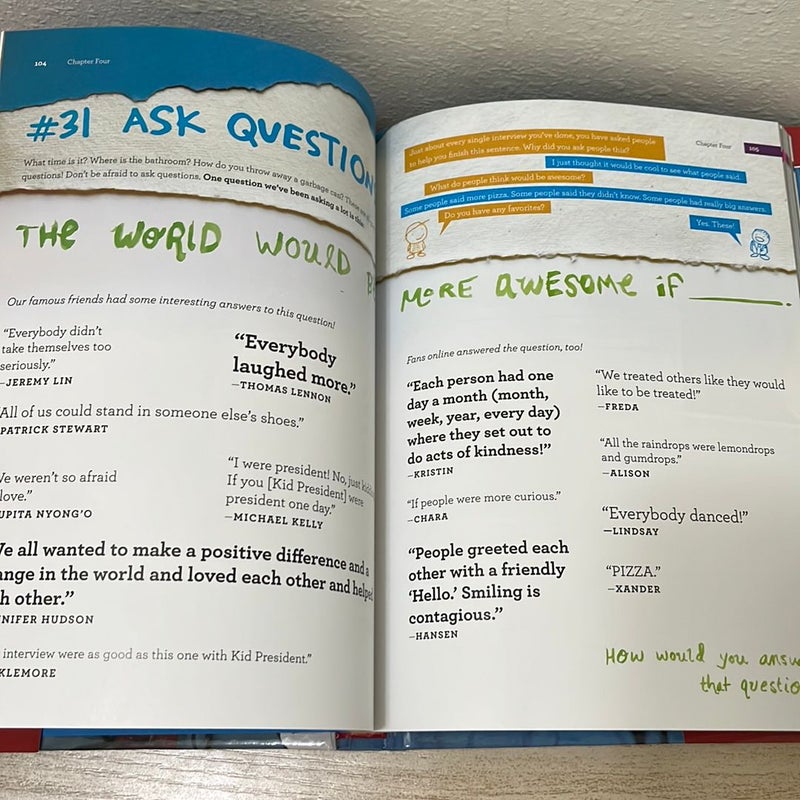 104 Chapter Four
#31 ASK QUESTION
What time is it? Where is the bathroom? How do you throw away a garbage can? These are all
questions! Don't be afraid to ask questions. One question we've been asking a lot is this:
THE WORLD WOULD B
Our famous friends had some interesting answers to this question!
"Everybody didn't
take themselves too
seriously."
—JEREMY LIN
"Everybody
laughed more."
—THOMAS LENNON
"All of us could stand in someone else's shoes."
PATRICK STEWART
We weren't so afraid
love."
UPITA NYONG'O
"I were president! No, just
If you [Kid President] were
president one day."
—MICHAEL KELLY
We all wanted to make a positive difference and a
ange in the world and loved each other and helped
h other."
NIFER HUDSON
interview were as good as this one with Kid President."
KLEMORE
Chapter Four 105
Just about every single interview you've done, you have asked people
to help you finish this sentence. Why did you ask people this?
I just thought it would be cool to see what people said.
What do people think would be awesome?
Some people said more pizza. Some people said they didn't know. Some people had really big answers.
Do you have any favorites?
Yes. These!
MORE AWESOME if ________.
Fans online answered the question, too!
"Each person had one
day a month (month,
week, year, every day)
where they set out to
do acts of kindness!"
—KRISTIN
"If people were more curious."
—CHARA
"People greeted each
other with a friendly
'Hello.' Smiling is
contagious."
—HANSEN
"We treated others like they would
like to be treated!"
—FREDA
"All the raindrops were lemondrops
and gumdrops."
—ALISON
"Everybody danced!"
—LINDSAY
"PIZZA."
—XANDER
How would you answ
that questio